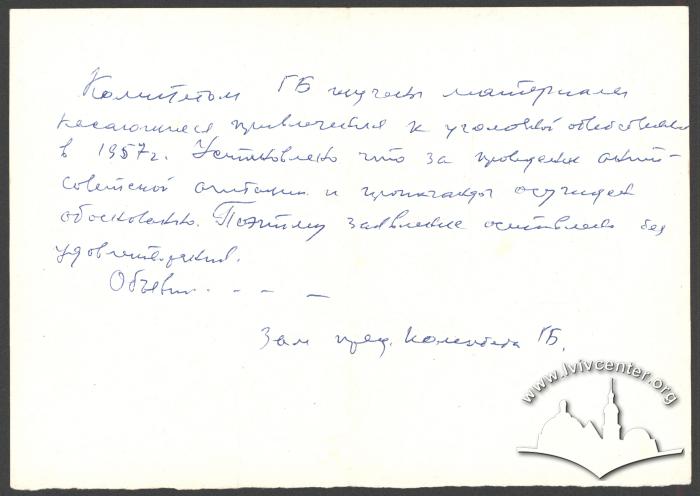 Комитетом ГБ изучены материалы
касающиеся привлечения к уголовной ответственно
в 1957 г. Установлено что за проведение анти-
советской агитации и пропаганды осужден
обосновано. Поэтому заявление оставлено без
удовлетворения.
Объявил. - - -
Зам пред. Комитета ГБ.
www.lvivcenter.org